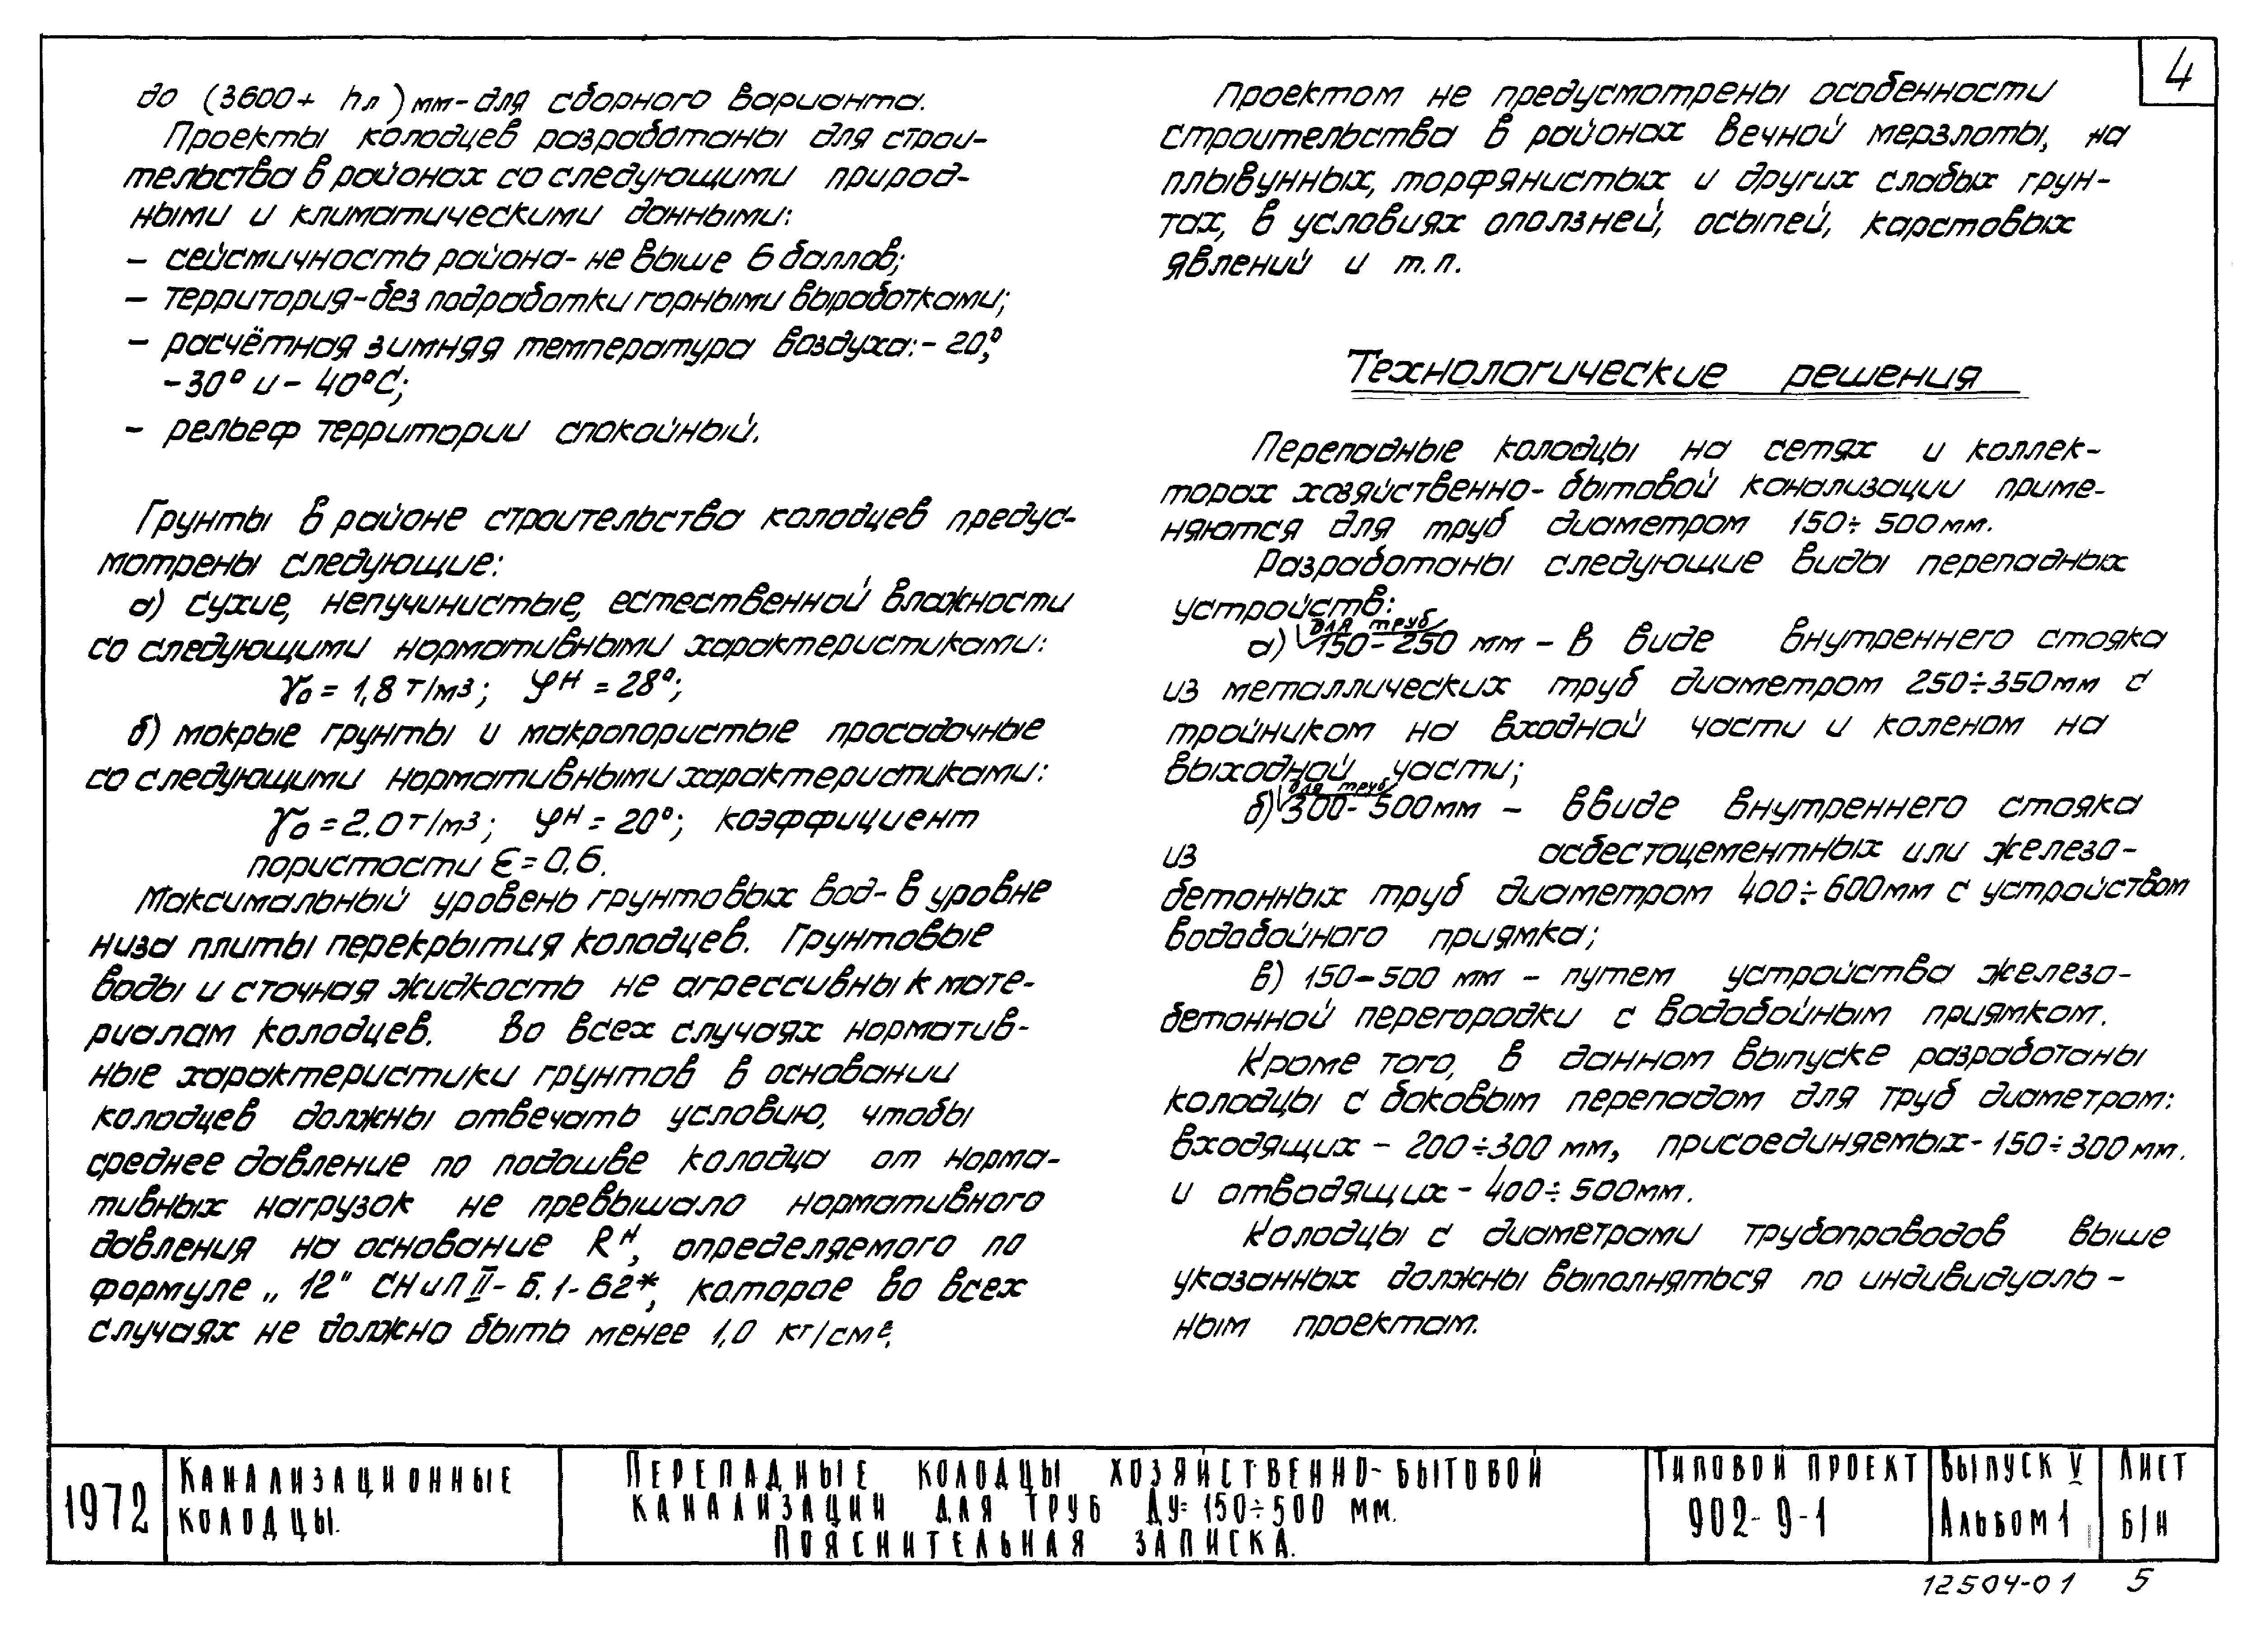 4
до (3600+ hл) мм-для сборного варианта.
Проекты колодцев разработаны для строи-
тельства в районах со следующими природ-
ными и климатическими данными:
- сейсмичность района- не выше 6 баллов;
- территория-без подработки горными выработками;
- расчётная зимняя температура воздуха:- 20°,
-30° и - 40°С;
- рельеф территории спокойный.
Грунты в районе строительства колодцев предус-
мотрены следующие:
а) сухие, непучинистые, естественной влажности
со следующими нормативными характеристиками:
γо = 1,8 т/м3; φн = 28°;
б) мокрые грунты и макропористые просадочные
со следующими нормативными характеристиками:
γо = 2.0 т/м3; φн = 20°; коэффициент
пористости ε = 0.6.
Максимальный уровень грунтовых вод- в уровне
низа плиты перекрытия колодцев. Грунтовые
воды и сточная жидкость не агрессивны к мате-
риалам колодцев. Во всех случаях норматив-
ные характеристики грунтов в основании
колодцев должны отвечать условию, чтобы
среднее давление по подошве колодца от норма-
тивных нагрузок не превышало нормативного
давления на основание Rн, определяемого по
формуле „12" СНиП II- Б.1-62*, которое во всех
случаях не должно быть менее 1,0 кг/см².
Проектом не предусмотрены особенности
строительства в районах вечной мерзлоты, на
плывунных, торфянистых и других слабых грун-
тах, в условиях оползней, осыпей, карстовых
явлений и т.п.
Технологические решения
Перепадные колодцы на сетях и коллек-
торах хозяйственно-бытовой канализации приме-
няются для труб диаметром 150÷500мм.
Разработаны следующие виды перепадных
устройств:
для труб
а) 150-250 мм - в виде внутреннего стояка
из металлических труб диаметром 250÷350мм с
тройником на входной части и коленом на
выходной части;
для труб
б) 300-500мм - ввиде внутреннего стояка
из асбестоцементных или железо-
бетонных труб диаметром 400÷600мм с устройством
водобойного приямка;
в) 150-500 мм - путем устройства железо-
бетонной перегородки с водобойным приямком.
Кроме того, в данном выпуске разработаны
колодцы с боковым перепадом для труб диаметром:
входящих - 200÷300 мм, присоединяемых- 150÷300мм.
и отводящих - 400÷500мм.
Колодцы с диаметрами трубопроводов выше
указанных должны выполняться по индивидуаль-
ным проектам.
1972
Канализационные
колодцы.
Перепадные колодцы хозяйственно-бытовой
канализации для труб Ду= 150÷500 мм.
Пояснительная записка.
Типовой проект
902-9-1
Выпуск V
Альбом 1
Лист
б/н
12504-01 5